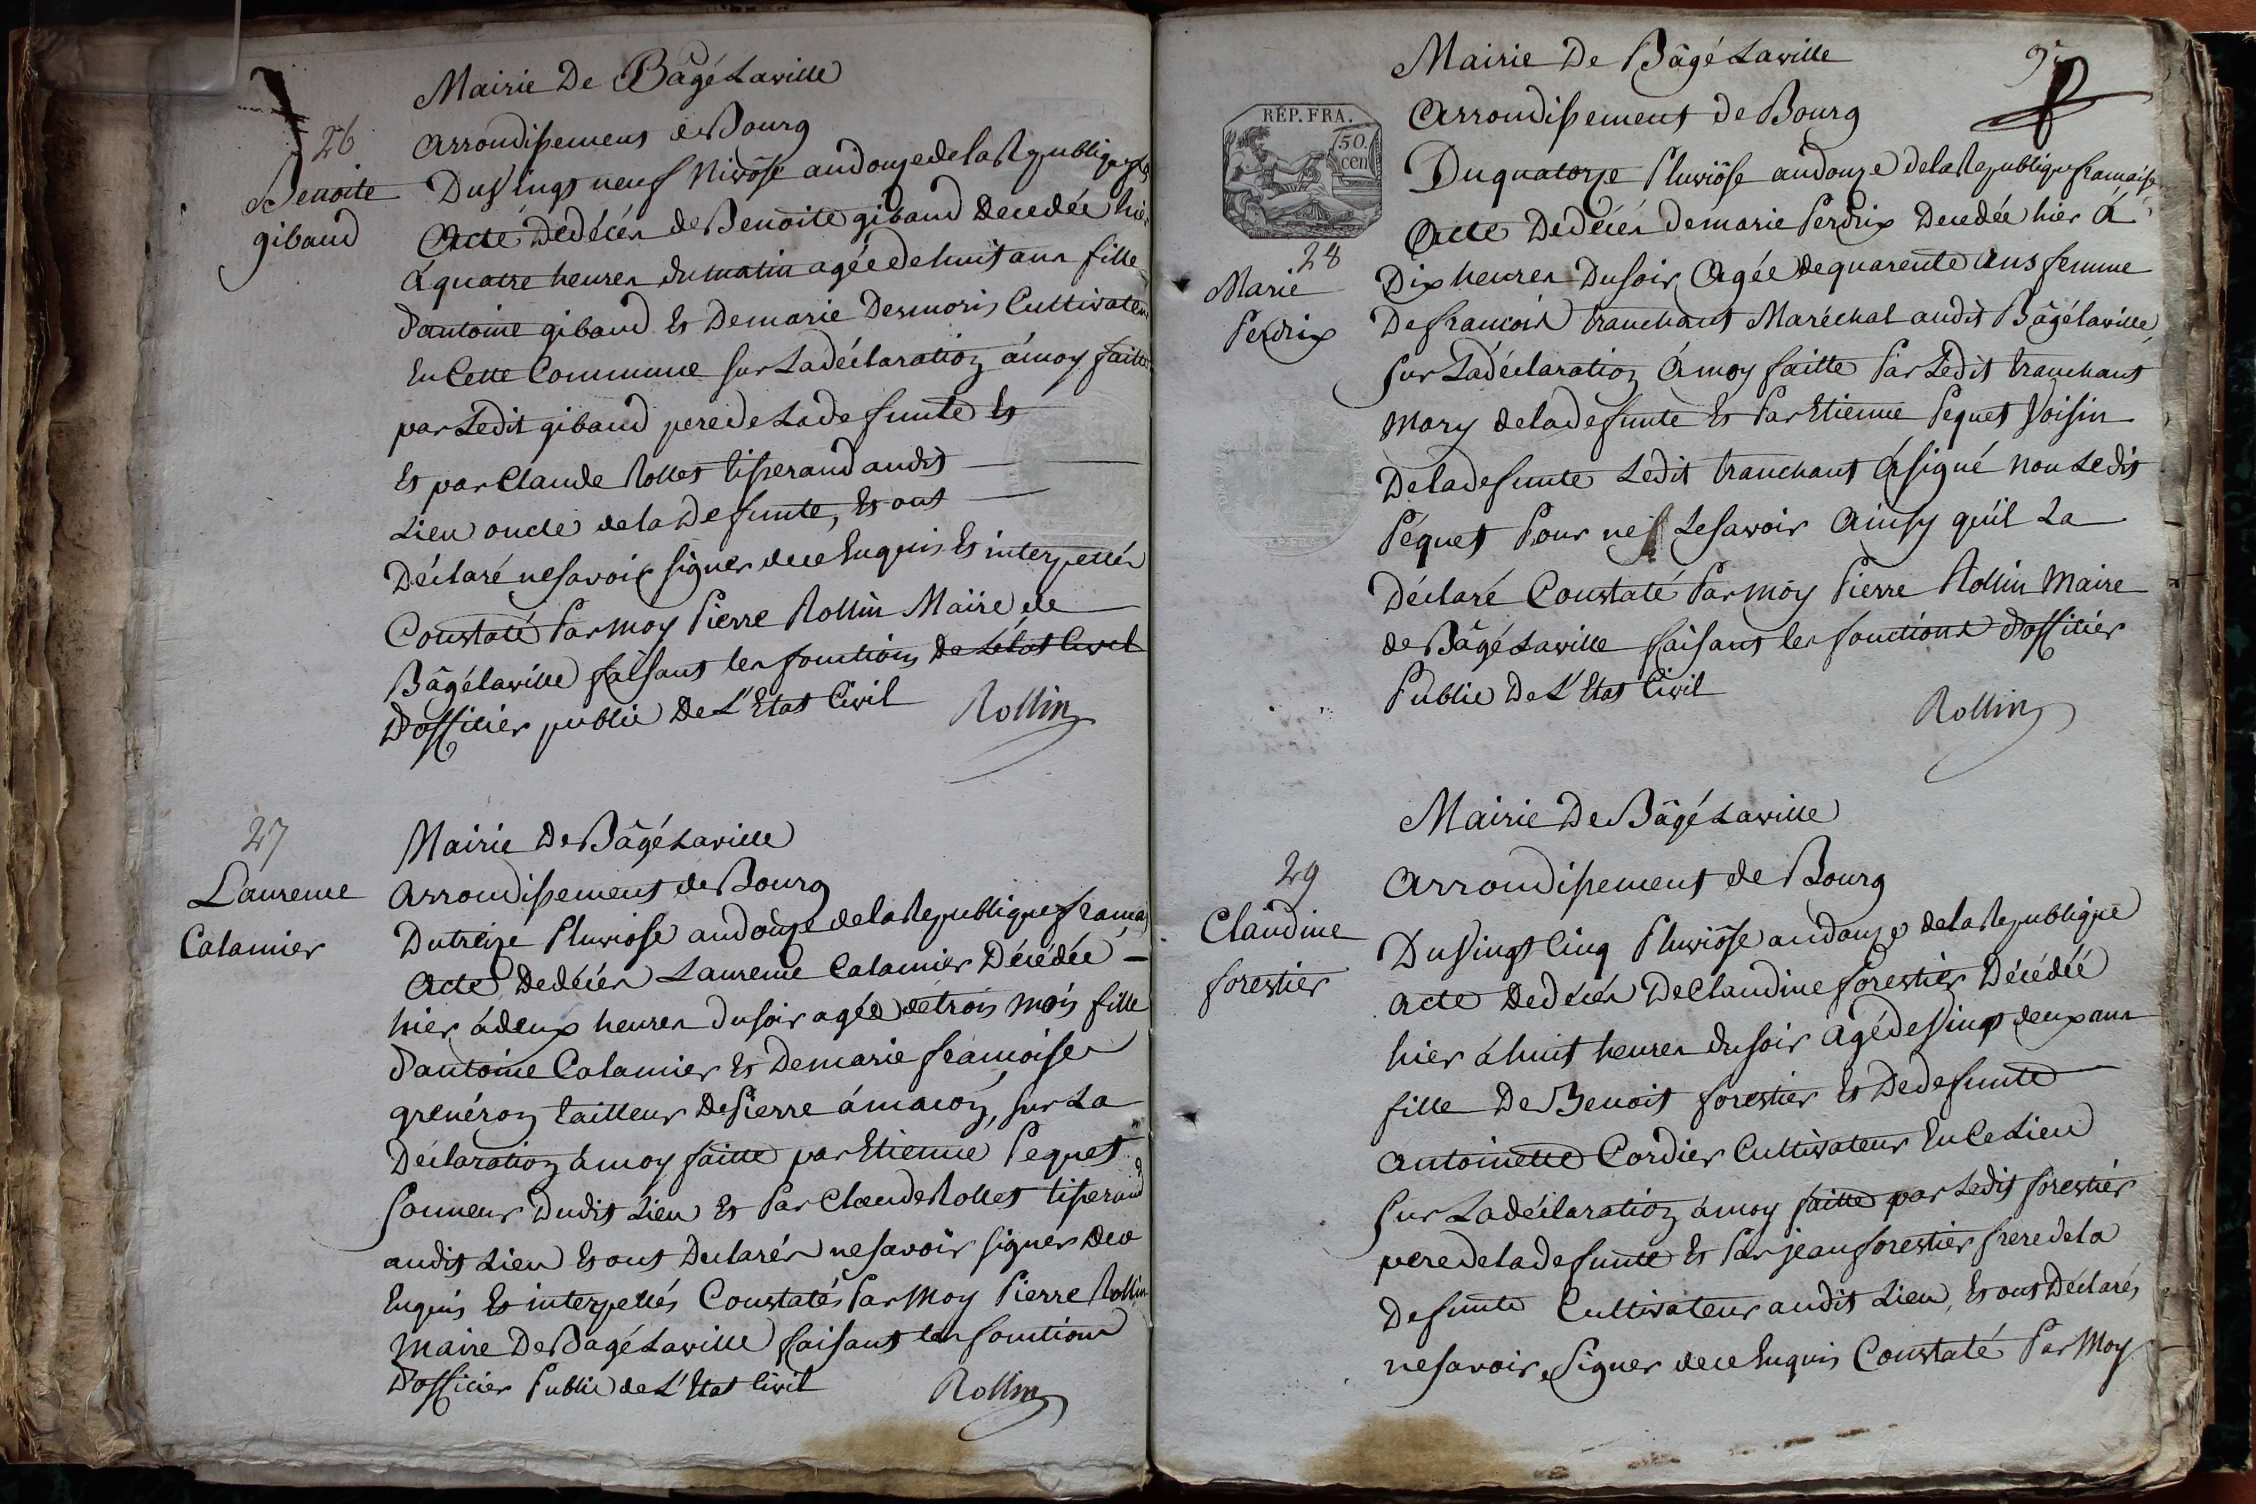 26
Benoite
gibaud
Mairie De Bâgé Laville
Arrondissement de Bourg
Du Vingt neuf Nivôse an douze de la Republique
Acte De décés de Benoite gibaud Decedée hier
à quatre heures du matin agée de huit ans fille
d'antoine gibaud Et De marie Desmoris Cultivateur
En Cette Commune sur La déclaration à moy faitte
par Ledit gibaud pere de La defunte Et
Et par Claude Rollet tisserand audit
Lieu oncle de la Defunte, Et ont
Déclaré ne savoir signer de ce Enquis Et interpellés
Constaté Par moy Pierre Rollin Maire de
Bâgé laville faisant les fonctions De L'état Civil
D'officier public De L'Etat Civil
Rollin
27
Laurence
Calamier
Mairie De Bâgé Laville
Arrondissement de Bourg
Du treize Pluviose an douze de la Republique francai
Acte De décés Laurence Calamier Décédée
hier à deux heures du soir agée de trois mois fille
d'antoine Calamier Et De marie francoise
grenéron tailleur De Pierre à macon, sur La
Déclaration à moy faitte par Etienne Pequet
sonneur Dudit Lieu Et Par Claude Rollet tisserand
audit Lieu Et ont Declarés ne savoir signer de ce
Enquis Et interpellés Constatés Par Moy Pierre Rollin
Maire De Bagé Laville faisant les fonctions
D'officier Public de L'Etat Civil
Rollin
Mairie De Bâgé Laville
RÉP. FRA.
50
cen
28
Marie
Perdrix
Arrondissement de Bourg
Du quatorze Pluviôse an douze de la Republique francaise
Acte De décés de marie Perdrix Decedée hier à
Dix heures Du soir Agée de quarente Ans femme
De francois tranchant Maréchal audit Bâgé laville
sur La déclaration à moy faitte Par Ledit tranchant
Mary de la defunte Et Par Etienne Pequet Voisin
De la defunte Ledit tranchant à signé non Ledit
Péquet Pour ne Le savoir Ainsy qu'il La
Déclaré Constaté Par moy Pierre Rollin Maire
de Bâgé Laville faisant les fonctions D'officier
Public De L'Etat Civil
Rollin
29
Claudine
forestier
Mairie De Bâgé Laville
Arrondissement de Bourg
Du Vingt Cinq Pluviôse an douze de la Republique
Acte De décés De Claudine forestier Décédée
hier à huit heures du soir Agé de Vingt deux ans
fille De Benoit forestier Et De defunte
Antoinette Cordier Cultivateur En Ce Lieu
sur La déclaration à moy faitte par Ledit forestier
pere de la defunte Et Par jean forestier frere de la
Defunte Cultivateur audit Lieu, Et ont Déclarés
ne savoir Signer de ce Enquis Constaté Par Moy